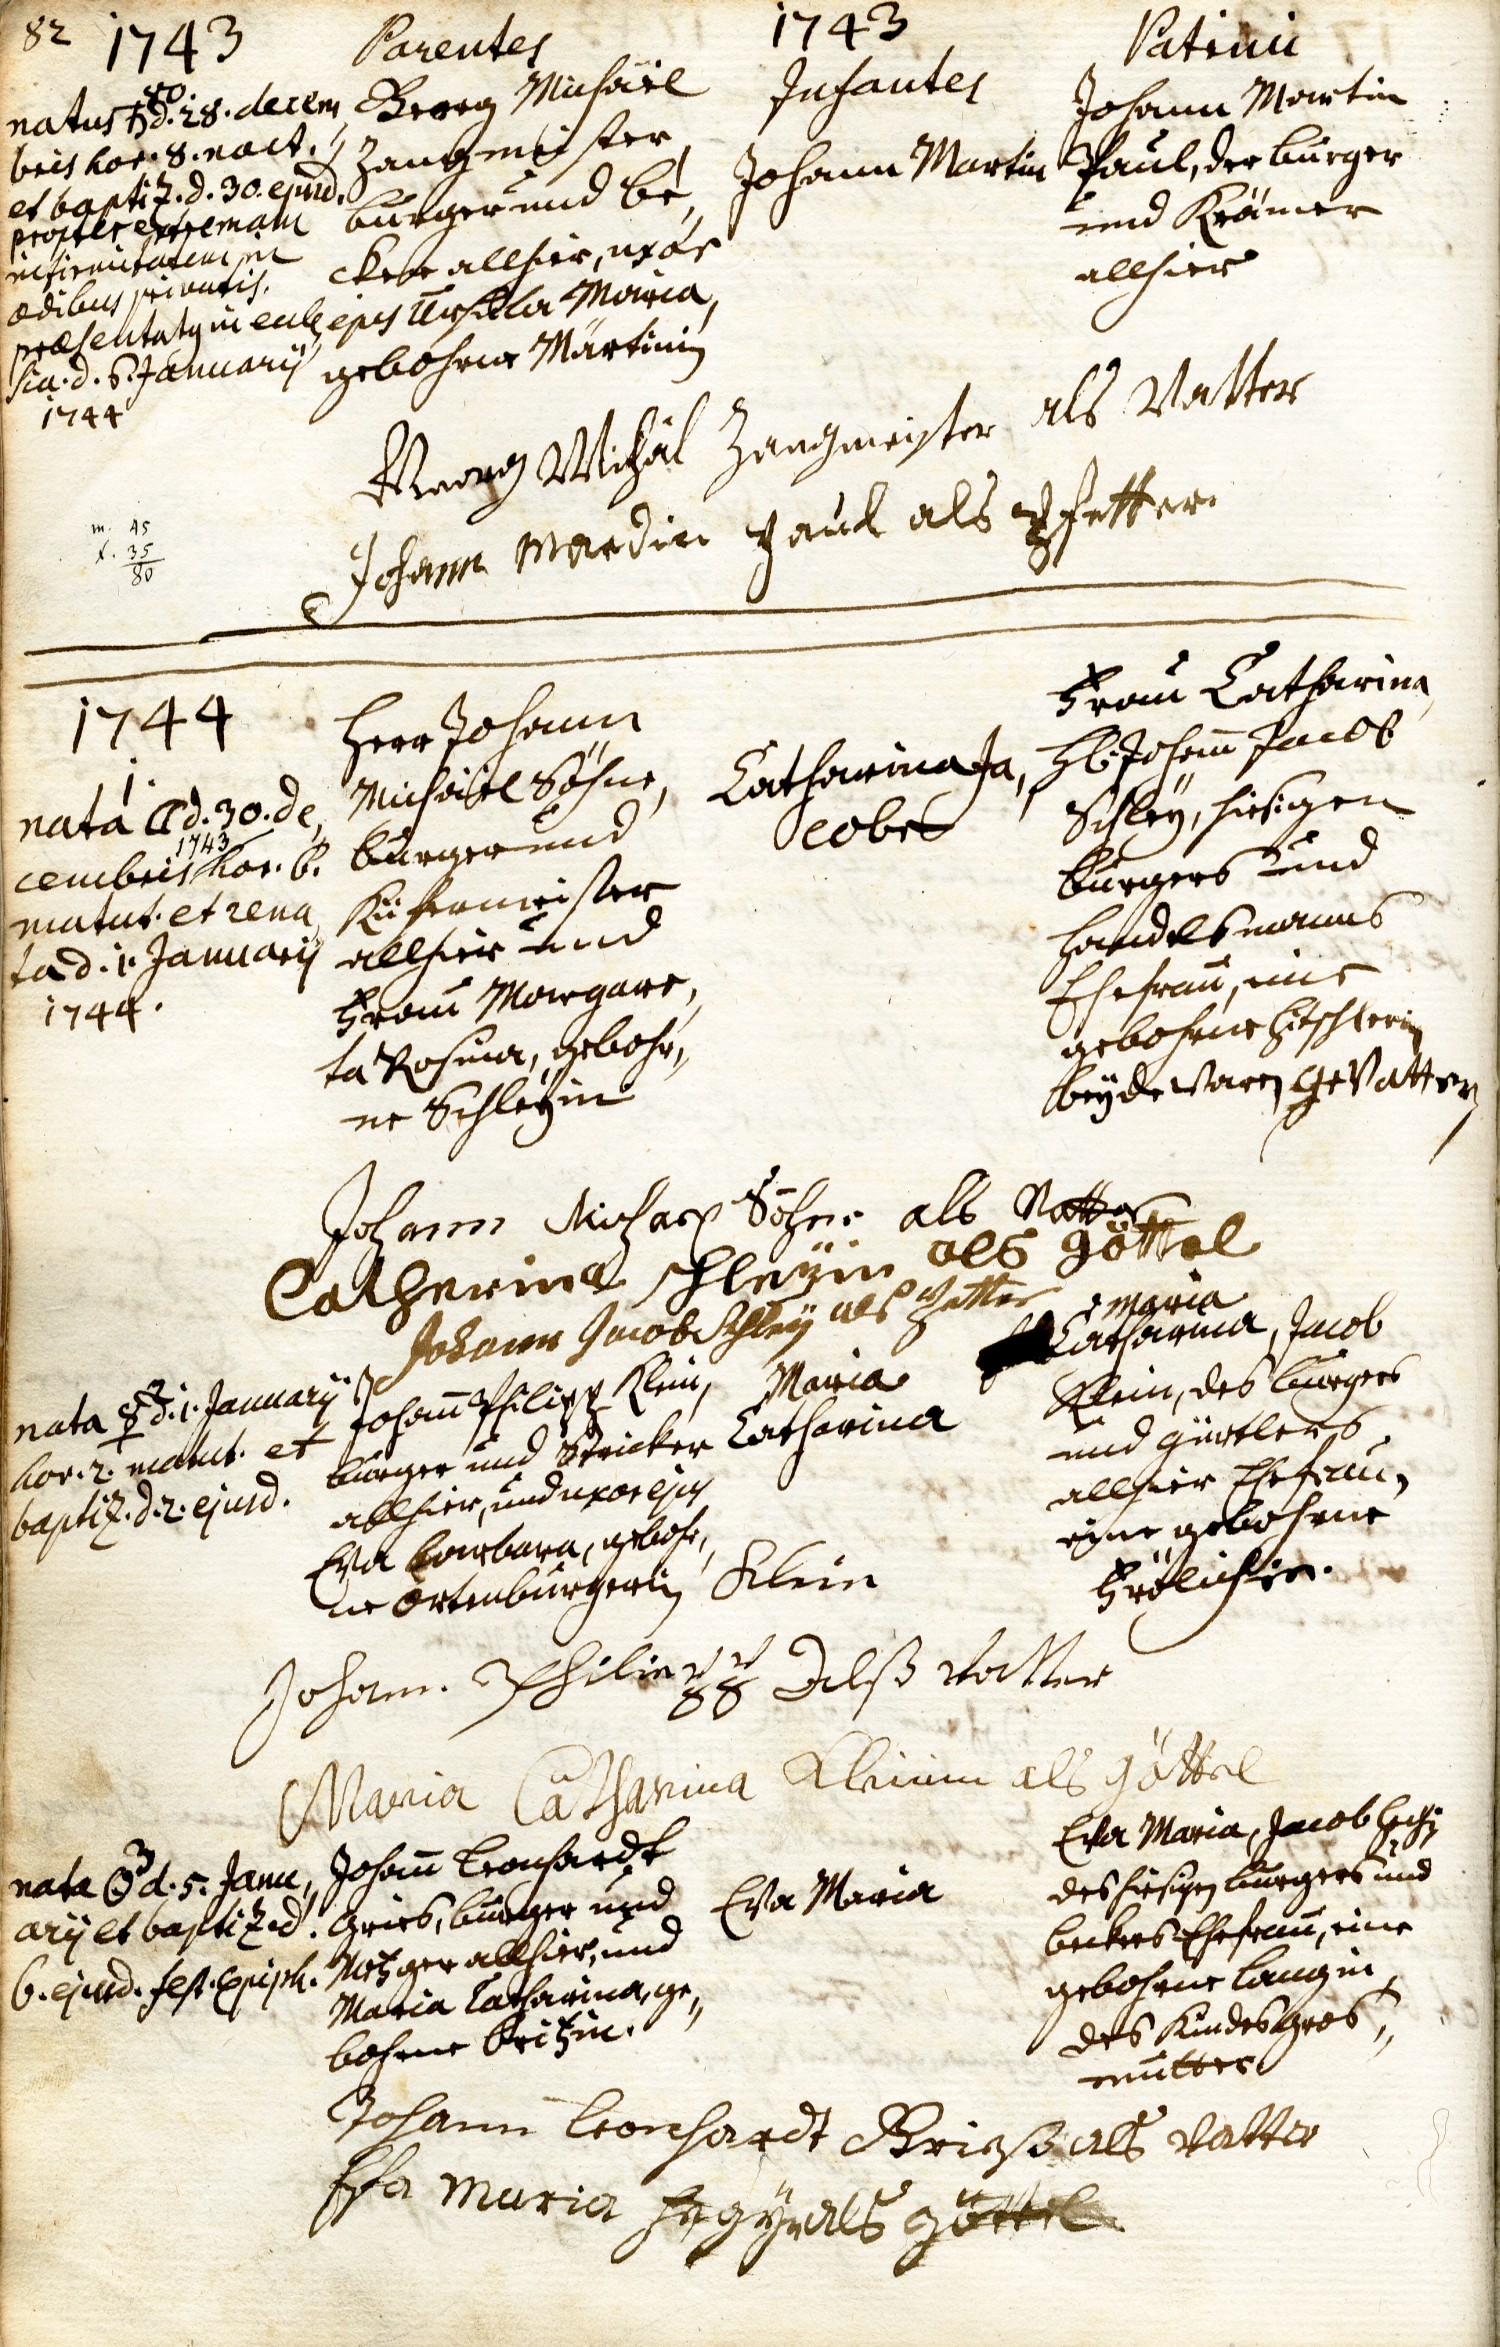 82 1743
Parentes
1743
Infantes
Patrini
80.
natus ♄ d. 28. decem,
bris hor. 8. noct.
et baptiz. d. 30. ejusd.
propter extremam
infirmitatem in
ædibus privatis.
præsentatq in eccle,
sia. d. 6. Januarij
1744
Georg Michäel
Zangmeister,
burger und be,
cker allhier, uxor
ejus Ursula Maria,
gebohrne Märtinin
Johann Martin
Johann Martin
Paul, der burger
und Krämer
allhier
Georg Michäl Zangmeister als Vatter
Johann Mardin Paul als Pfetter.
m. 45
f. 35
80
1744
1.
nata ☾ d. 30. de,
1743
cembris hor. 6.
matut. et rena,
ta d. 1. Januarij
1744.
Herr Johann
Michäel Söhne,
burger und
Küfermeister
allhier und
Frau Margare,
ta Rosina, gebohr,
ne Schleÿin
Catharina Ja,
cobea
Frau Catharina,
H. Johann Jacob
Schleÿ, hiesigen
burgers und
Handelsmanns
Ehefrau, eine
gebohrne
beÿde waren Gevattern
Johann Michael Söhne als Vatter
Catherina schleÿin als göttel
Johann Jacob Schleÿ als Petter
2
nata ☿ d. 1. Januarij
hor. 2. matut. et
baptiz. d. 2. ejusd.
Johann Philipp Klein,
burger und Stricker
allhier, und uxor ejus
Eva barbara, gebohr,
ne Ortenburgerin
Maria
Catharina
Maria
Catharina, Jacob
Klein, des burgers
und gürtlers
allhier Ehefrau,
eine gebohrne
Frölichin.
Klein
Johann. Philipp alß vatter
Maria Catharina Kleinin als göttel
3
nata ☉ d. 5. Janu,
arij et baptiz. d.
6. ejusd. fest. Epiph.
Johann Leonhardt
Gries, burger und
Metzger allhier, und
Maria Catharina, ge,
bohrne Britzin.
Eva Maria
Eva Maria, Jacob
des hiesigen burgers und
beckers Ehefrau, eine
gebohrne Langin,
des Kindes Gros,
mutter
Johann Leonhardt Grieß als vatter
Efa Maria als göttel